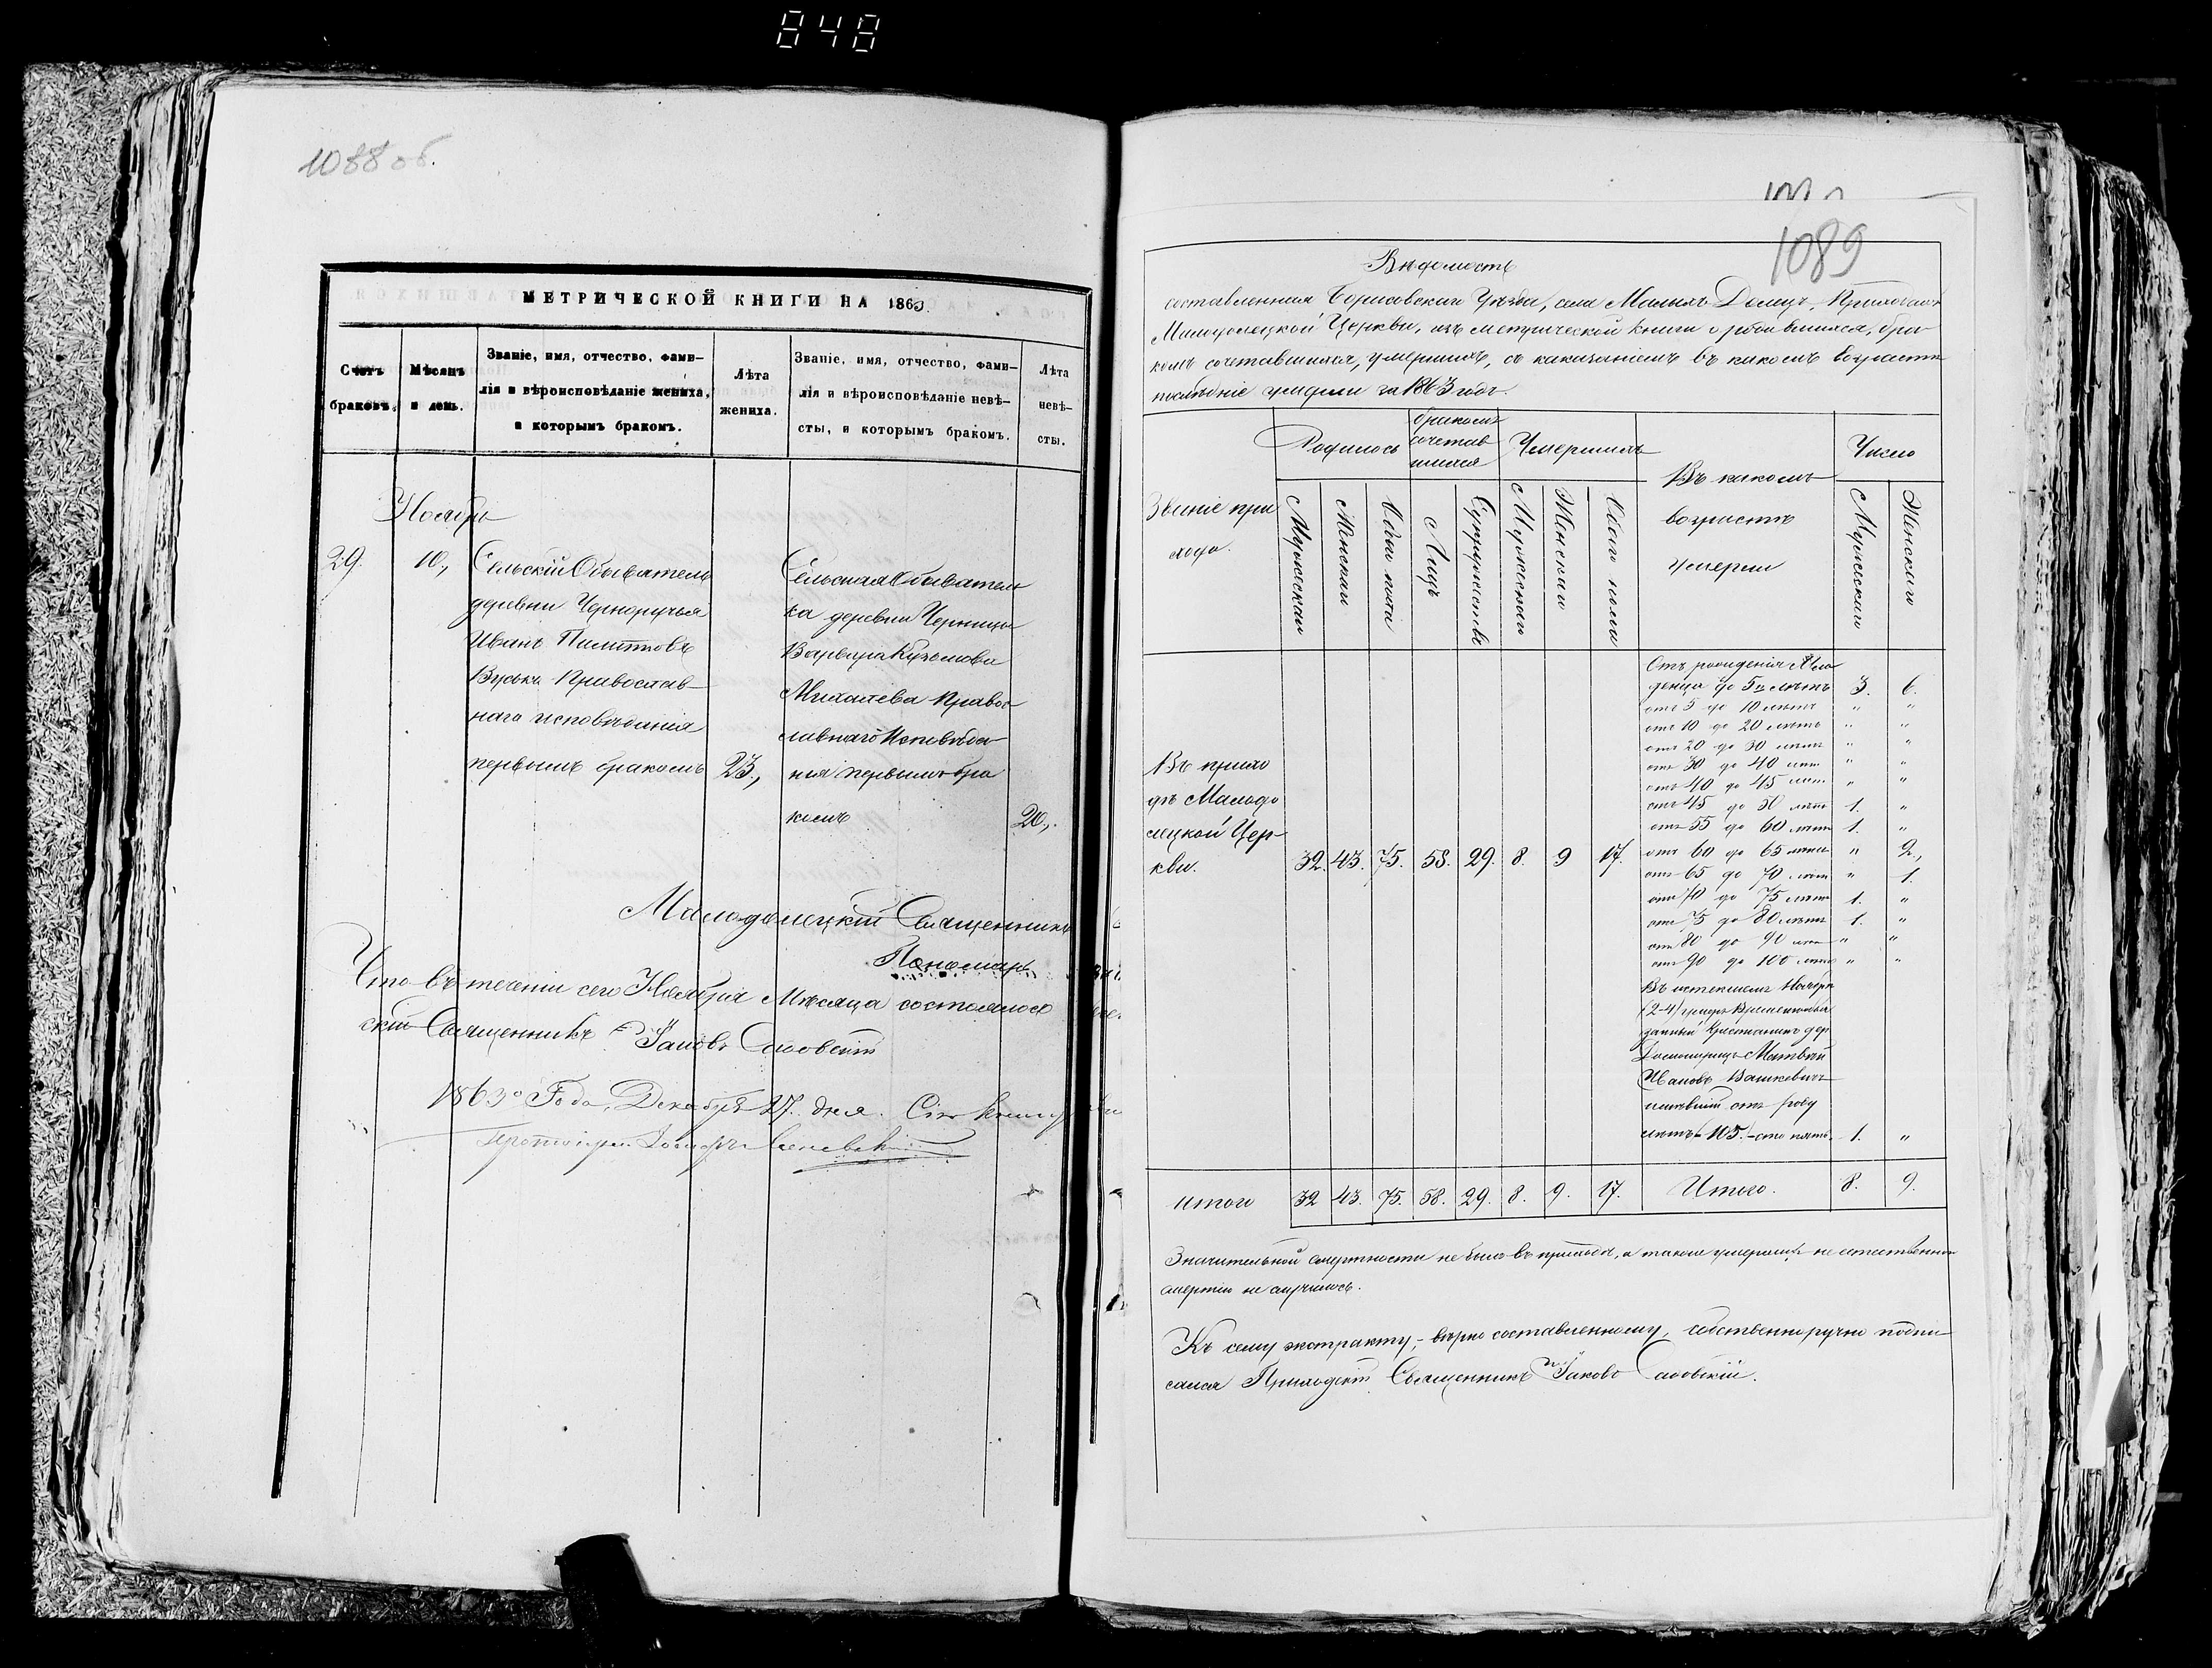 848
1088 об.
МЕТРИЧЕСКОЙ КНИГИ НА 1863.
Счетъ браковъ.
Мѣсяцъ и день.
Званіе, имя, отчество, фами-
лія и вѣроисповѣданіе жениха,
и которымъ бракомъ.
Лѣта жениха.
Званіе, имя, отчество, фами-
лія и вѣроисповѣданіе невѣ-
сты, и которымъ бракомъ.
Лѣта невѣ-
сты.
Ноябрь
29.
10.,
Сельскій Обыватель
деревни Черноручья
Иванъ
Православ-
наго исповѣданія
первымъ бракомъ
23.,
Сельская Обыватель
ка деревни Черницы
Варвара Кузьмова
Михалева Правос-
лавнаго Исповѣда
нія первымъ бра
комъ
20.,
Малодолецкій Священникъ
Пономарь
Что въ теченіи сего Ноября Мѣсяца состоялось
скій Священникъ Іаковъ Садовскій
1863го Года, Декабря 27. дня. Сію книгу
Протоіерей
1089
Вѣдомость
составленная Борисовскаго Уѣзда, села Малыхъ Долецъ, Приходской
Малодолецкой Церкви, изъ метрической книги о родившихся, бра-
комъ сочетавшихся, умершихъ, съ показаніемъ въ какомъ возрастѣ
послѣдніе умерли за 1863 годъ.
Званіе при
хода.
Родилось
бракомъ
сочетав
шихся
Умершихъ
Въ какомъ
возрастѣ
умерли
Число
Мужескаго
Женскаго
Обоего пола
Лицъ
Супружествъ
Мужескаго
Женскаго
Обоего пола
Мужескаго
Женскаго
Въ прихо
дѣ Малодо
лецкой Цер-
кви.
32. 43. 75. 58. 29. 8. 9 17.
Отъ рожденія Мла
денца до 5ти лѣтъ 3. 6.
отъ 5 до 10 лѣтъ " "
отъ 10 до 20 лѣтъ " "
отъ 20 до 30 лѣтъ " "
отъ 30 до 40 лѣтъ " "
отъ 40 до 45 лѣтъ " "
отъ 45 до 50 лѣтъ 1. "
отъ 55 до 60 лѣтъ 1. "
отъ 60 до 65 лѣтъ " 2.,
отъ 65 до 70 лѣтъ " 1.
отъ 70 до 75 лѣтъ 1. "
отъ 75 до 80 лѣтъ 1. "
отъ 80 до 90 лѣтъ " "
отъ 90 до 100 лѣтъ " "
Въ истекшемъ Ноябрѣ
(2-4) умеръ Временнообя
занный Крестьянинъ дер.
Матвѣй
Ивановъ Вашкевичъ
имѣвшій отъ роду
лѣтъ 105. - сто пять. 1. "
Итого 32 43. 75. 58. 29. 8. 9. 17. Итого. 8. 9.
Значительной смертности не было въ приходѣ, а также умершихъ не естественною
смертію не случилось.
Къ сему экстракту, - вѣрно составленному, собственноручно подпи-
сался Приходскій Священникъ Іаковъ Садовскій.